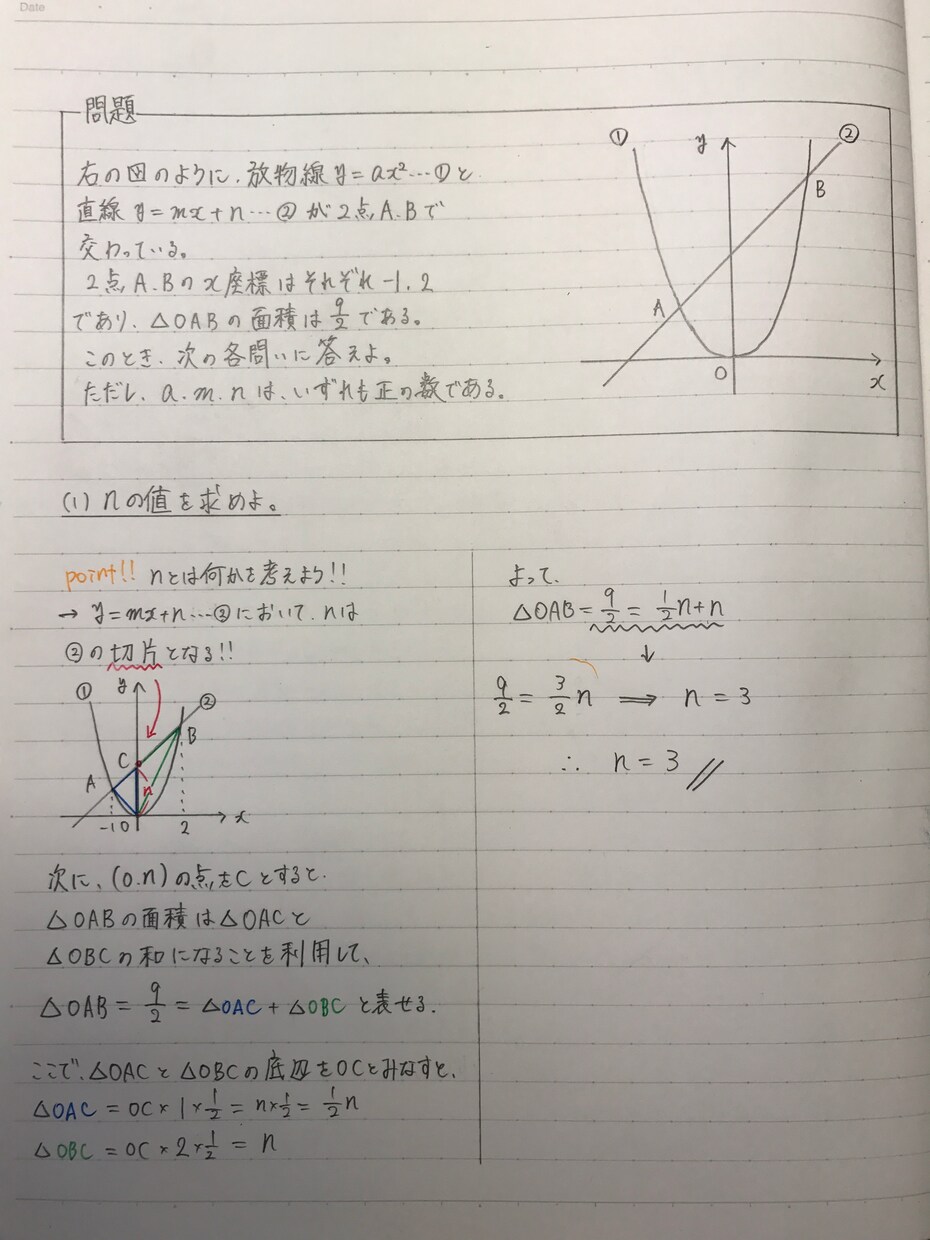 Date
問題
右の図のように、放物線 y=ax²…①と
直線 y=mx+n…②が2点A.Bで
交わっている。
2点A.Bのx座標はそれぞれ-1.2
であり、△OABの面積は9/2である。
このとき、次の各問いに答えよ。
ただし、a.m.nは、いずれも正の数である。
① y ②
B
A
O
x
(1) nの値を求めよ。
point!! nとは何かを考えよう!!
→ y=mx+n…②において、nは
②の切片となる!!
① y ②
B
C
A
n
-1 0 2 x
次に、(0.n)の点をCとすると、
△OABの面積は△OACと
△OBCの和になることを利用して、
△OAB = 9/2 = △OAC + △OBC と表せる.
ここで、△OACと△OBCの底辺をOCとみなすと、
△OAC = OC × 1 × 1/2 = n×1/2 = 1/2n
△OBC = OC × 2 × 1/2 = n
よって、
△OAB = 9/2 = 1/2n+n
↓
9/2 = 3/2n ⟹ n = 3
∴ n = 3 //